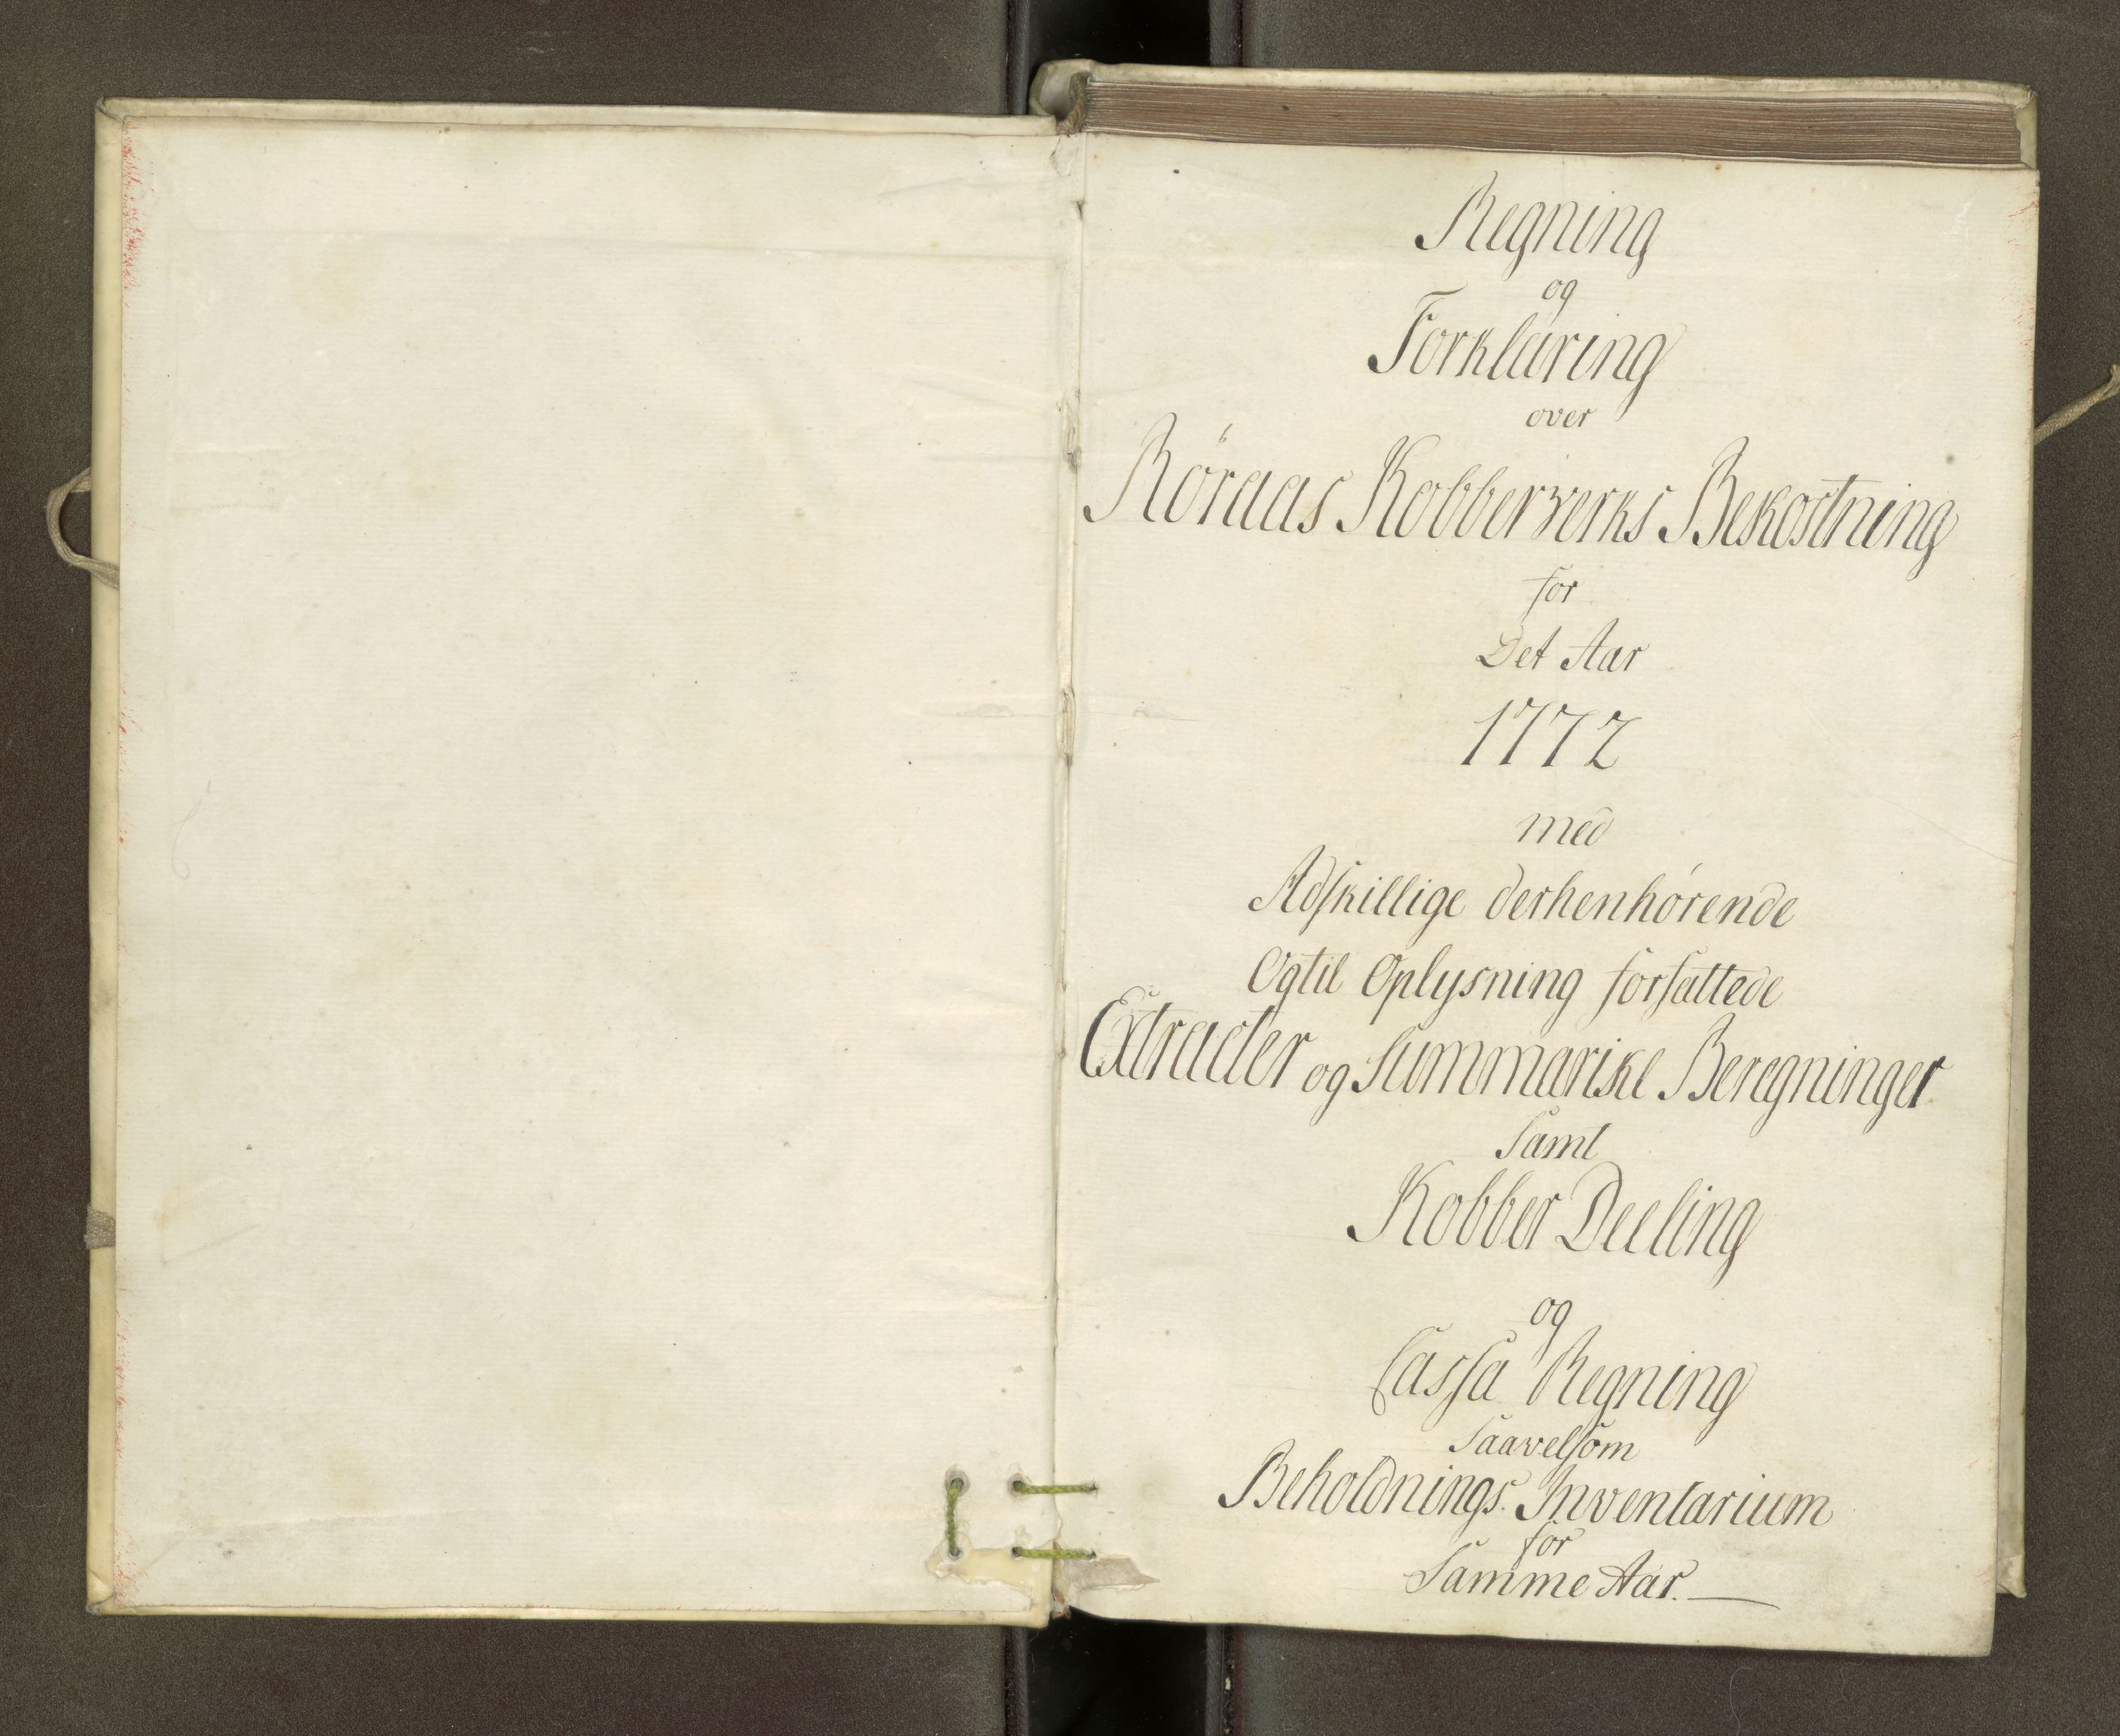 Regning
og
Forklaring
over
Röraas Kobberverks Bekostning
for
Det Aar
1772
med
Adskillige derhenhörende
Og til Oplysning forfattede
Extracter og Summariske Beregninger
Samt
Kobber Deeling
og
Cassa Regning
Saavelsom
Beholdnings Inventarium
for
Samme Aar.